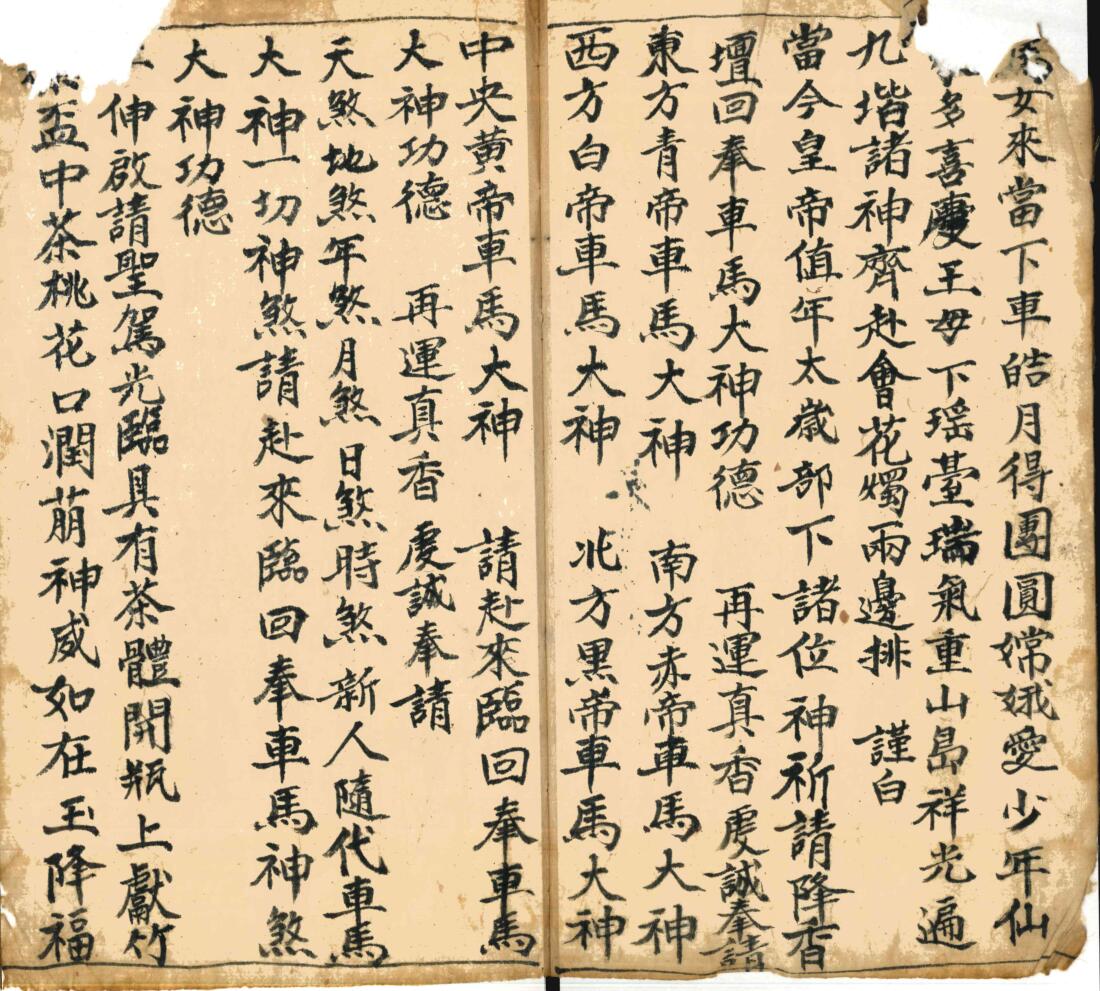 女來當下車皓月得團圓嫦娥愛少年仙
多喜慶王母下瑶臺瑞氣重山島祥光遍
九堦諸神齊赴會花燭兩邊排 謹白
當今皇帝值年太歲部下諸位神祈請降香
壇回奉車馬大神功德 再運真香虔誠奉請
東方青帝車馬大神 南方赤帝車馬大神
西方白帝車馬大神 北方黑帝車馬大神
中央黄帝車馬大神 請赴來臨回奉車馬
大神功德 再運真香虔誠奉請
天煞地煞年煞月煞日煞時煞新人隨代車馬
大神一切神煞請赴來臨回奉車馬神煞
大神功德
伸啟請聖駕光臨具有茶體開瓶上獻竹
盃中茶桃花口潤萠神威如在玉降福